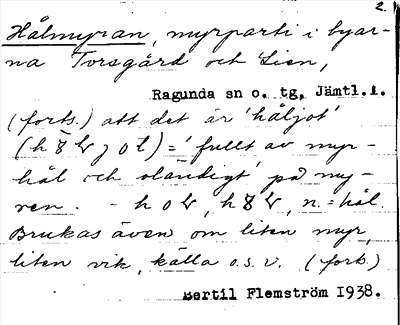 2.
Hålmyran, myrparti i byar-
na Torsgård och Lien,
Ragunda sn o. tg, Jämtl.l.
(forts.) att det är 'håljot'
= 'fullt av myr-
hål och eländigt' på my-
ren. - n. = hål.
Brukas även om liten myr,
liten vik, källa o.s.v. (forts.)
Bertil Flemström 1938.